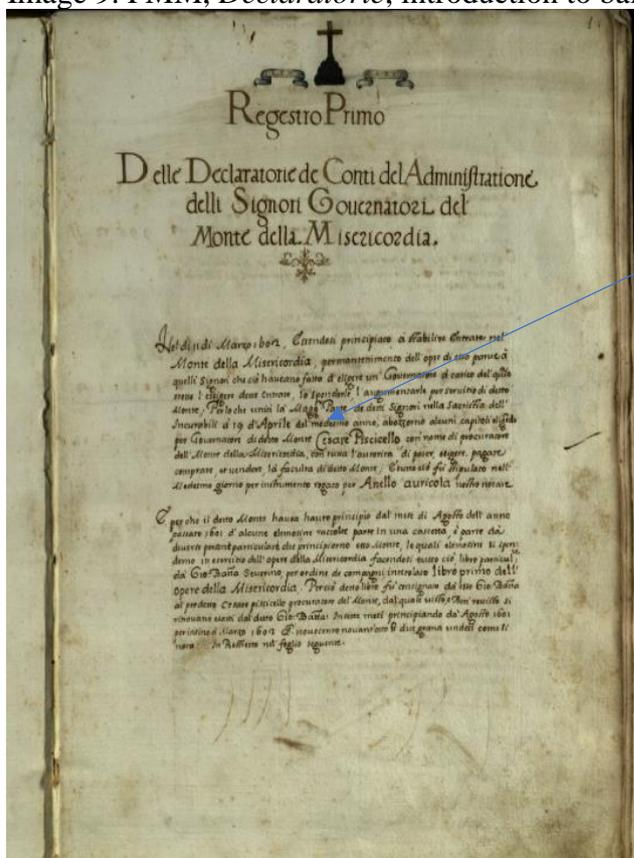 Image 9: PMM, Declaratorie, introduction to
Regestro Primo
Delle Declaratorie de Conti del Administratione
delli Signori Gouernatori del
Monte della Misericordia.
Nel di 11 di Marzo 1602, Essendosi principiato à stabilire Entrate nel
Monte della Misericordia, per mantenimento dell' opre di esso parue à
quelli Signori che ciò haueano fatto d'eligere un' Gouernatore à carico del quale
fusse l'esigere dette Entrate, lo spenderle l'augumentarle per seruitio di detto
Monte, Per lo che uniti la Magr Parte de detti Signori nella Sacristia dell'
Incurabili à 19 d'Aprile del medesimo anno, abozzorno alcuni capitoli
per Gouernatore di detto Monte Cesare Piscicello, con nome di procuratore
dell' Monte della Misericordia, con tutta l'autorità di poter, esigere, pagare
comprare, et uendere, la facultà di detto Monte, E tutto ciò fù stipulato nell'
Medesmo giorno per instrumento rogato per Anello auricola nostro notare
E perche il detto Monte hauea hauto principio dal mese di Agosto dell' anno
passato 1601 d'alcune elemosine raccolte parte in una cassetta, è parte da
diuersi particulari che principiorno esso Monte, le quali elemosine si spen
derno in esercitio dell' opere della Misericordia facendosi tutto ciò libro
da Gio: Batta Seuerino, per ordine de compagni intitolato libro primo dell'
opere della Misericordia. Perciò detto libro fu consignato da Gio: Batta
al predetto Cesare piscicello procuratore del Monte, dal quale uisto, si
ritrouano da detto Gio: Batta: In sette mesi principiando da Agosto 1601
per intino à Marzo 1602 nouecento nouant' otto due grana undeci come si
nota In nel foglio sequente.